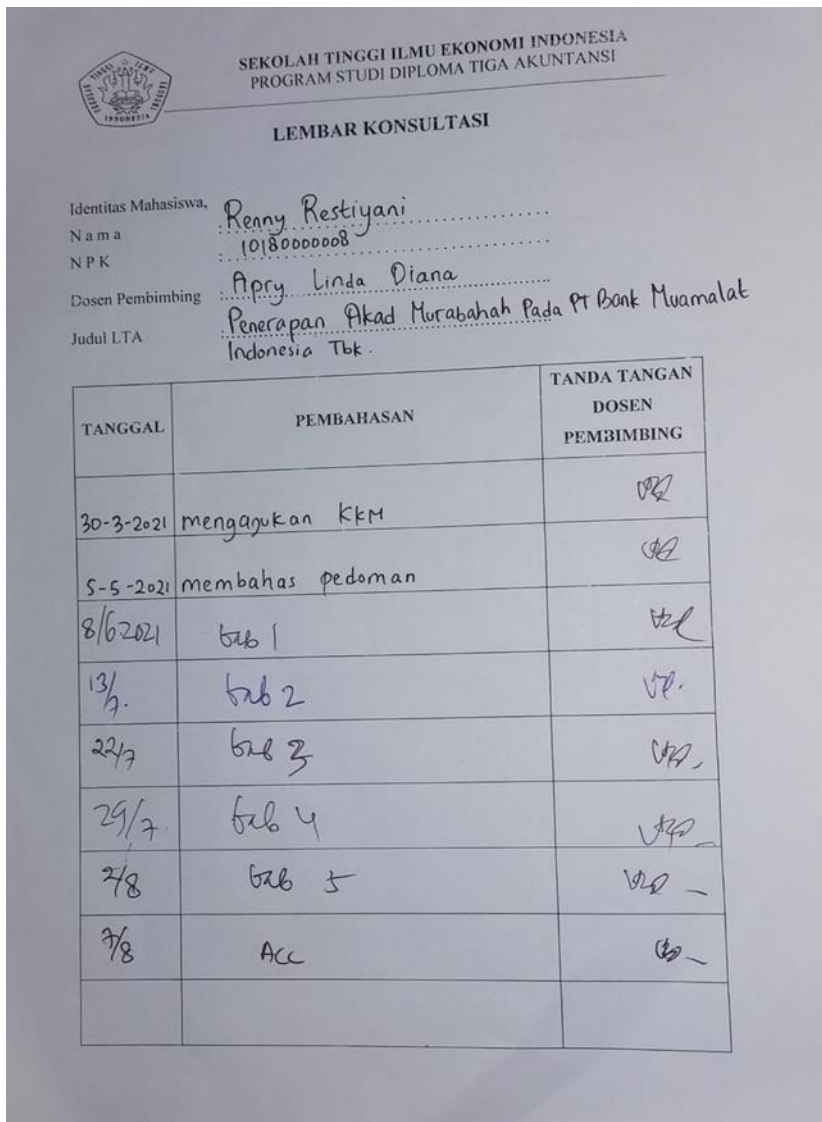 SEKOLAH TINGGI ILMU EKONOMI INDONESIA
PROGRAM STUDI DIPLOMA TIGA AKUNTANSI
LEMBAR KONSULTASI
Identitas Mahasiswa,
Nama : Renny Restiyani
NPK : 10180000008
Dosen Pembimbing : Apry Linda Diana
Judul LTA : Penerapan Akad Murabahah Pada PT Bank Muamalat
Indonesia Tbk.
TANGGAL PEMBAHASAN TANDA TANGAN DOSEN PEMBIMBING
30-3-2021 mengagukan KKM
5-5-2021 membahas pedoman
8/6 2021 bab 1
13/7. bab 2
22/7 bab 3
29/7. bab 4
2/8 bab 5
7/8 ACC